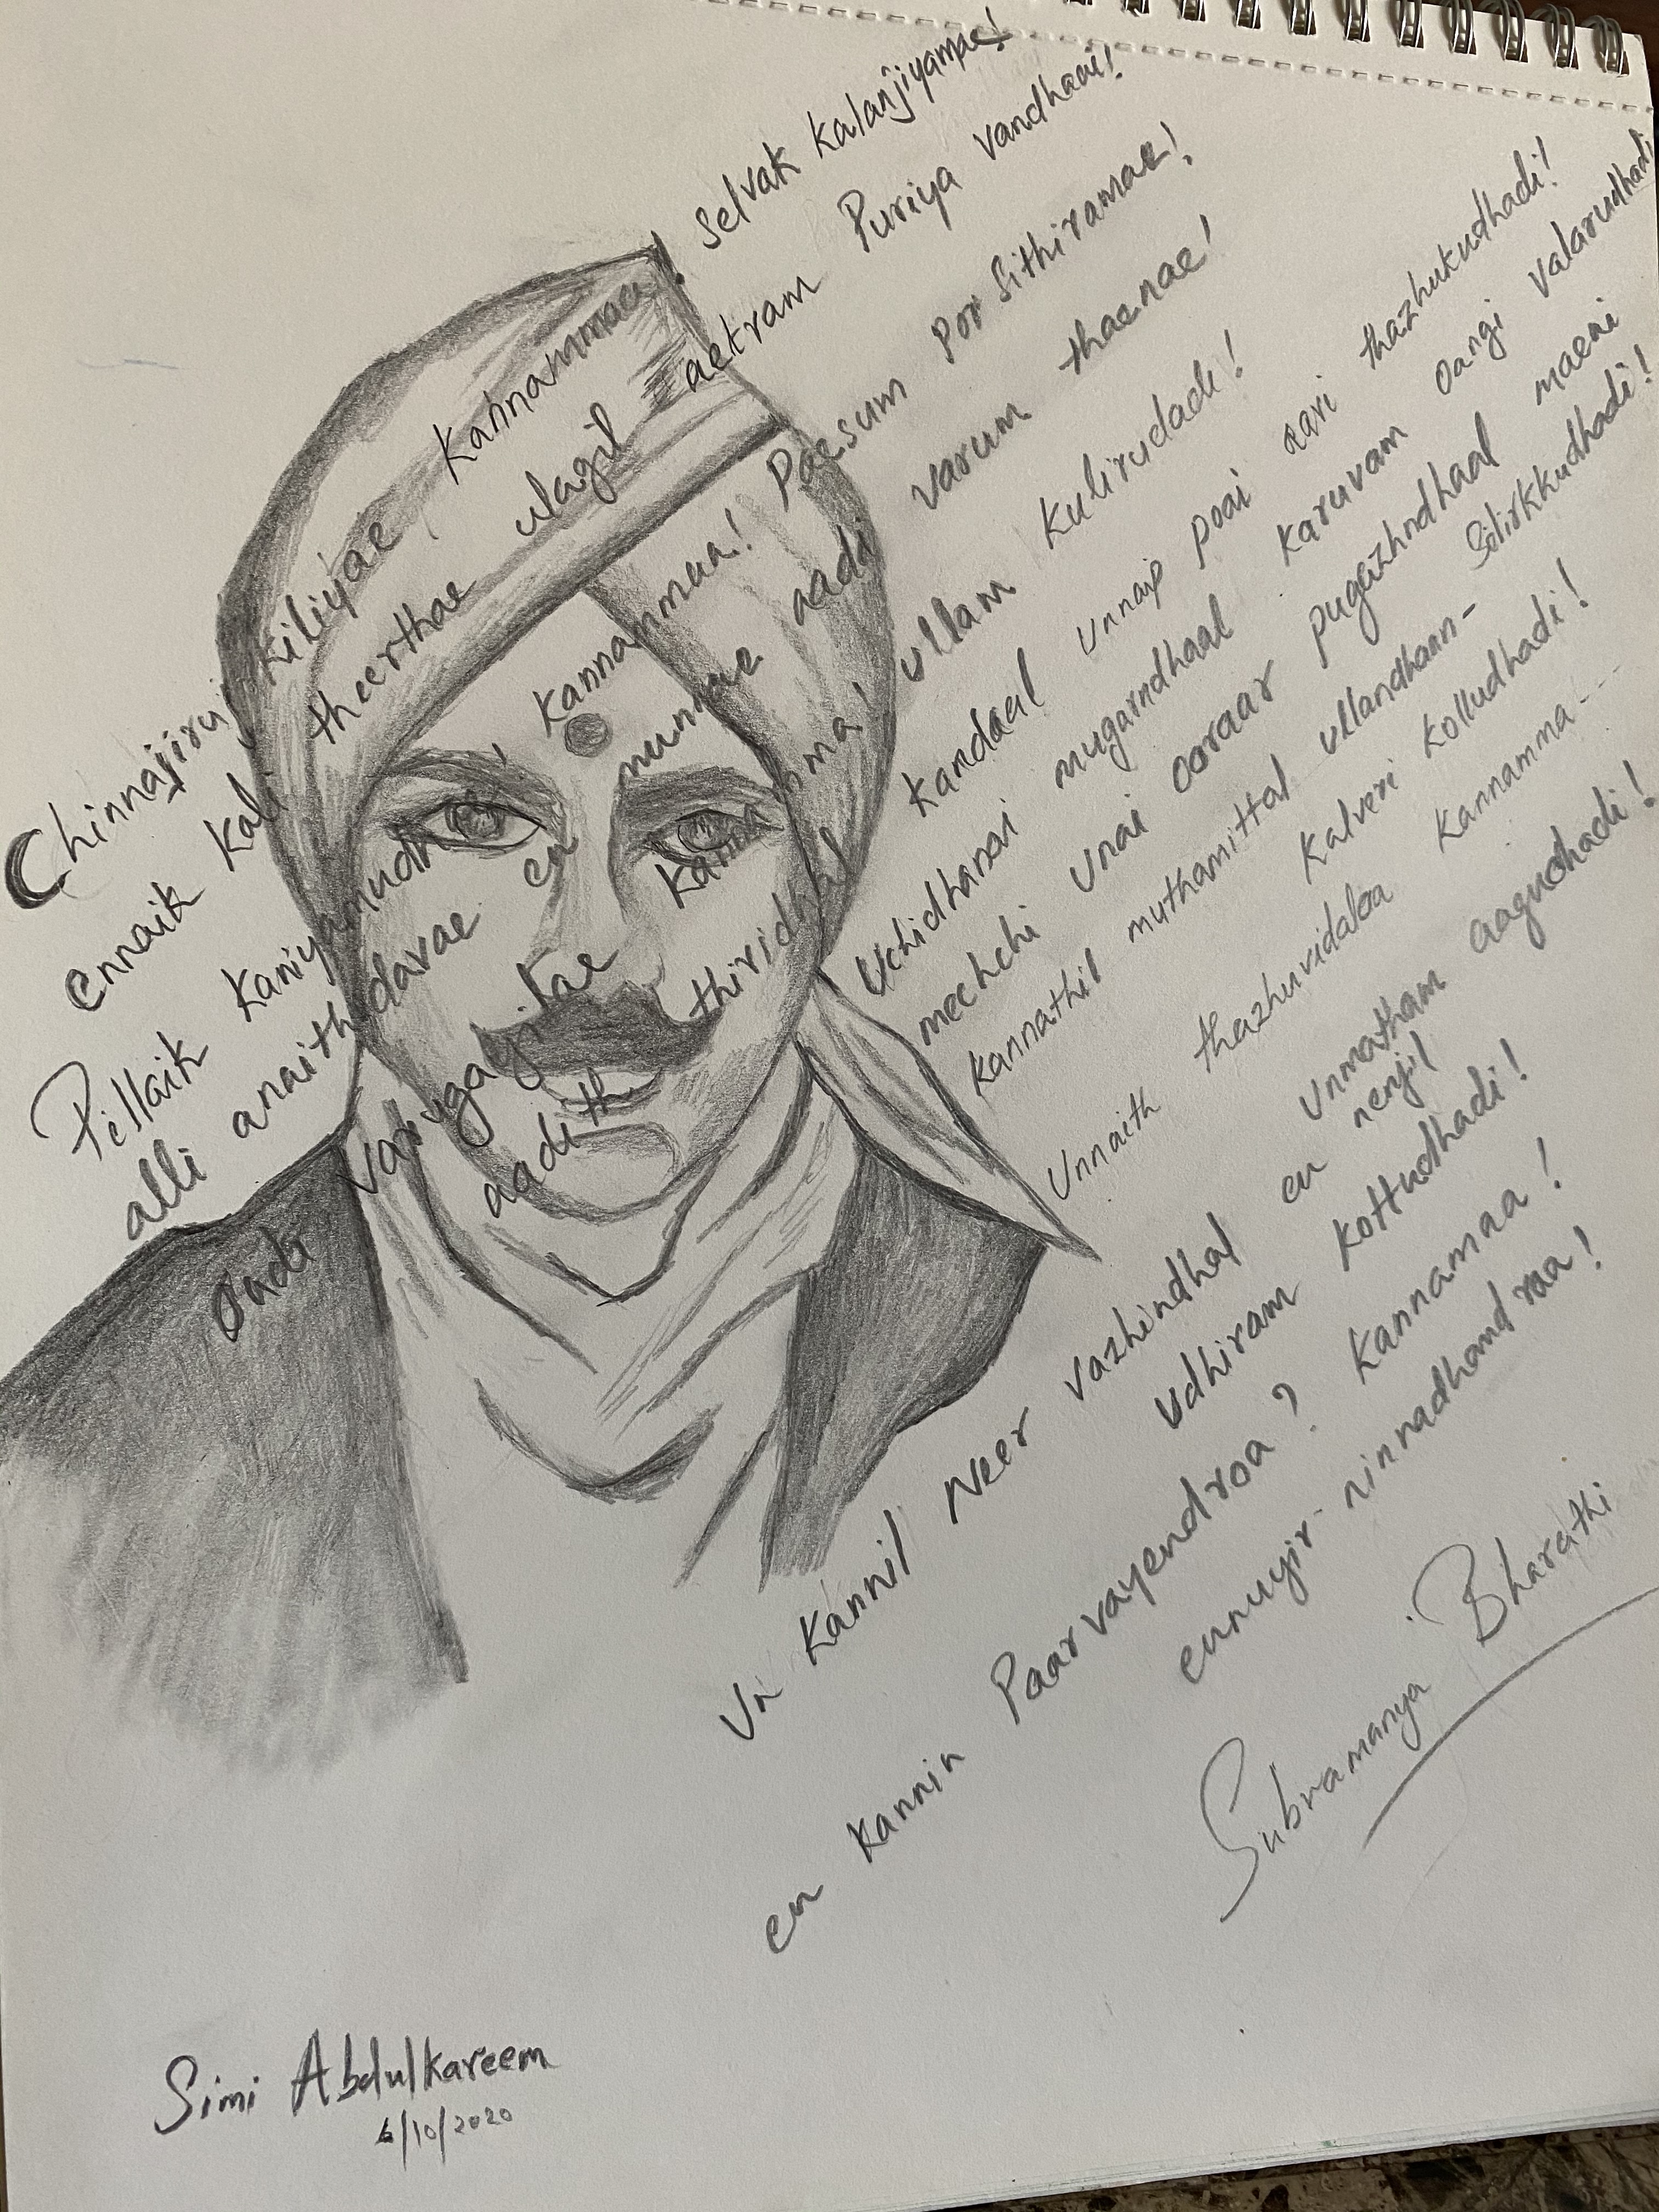 Chinnajiru kiliyae, Kannammaa! Selvak kalanjiyamae!
Ennaik kali theerthae ulagil aetram Puriya vandhaai!
Pillaik kaniyamudhae! Kannammaa! Paesum Por Sithiramae!
alli anaithidavae en munnae aadi varum thaenae!
Oadi varugayilae Kannamma! ullam kulirudadi!
aadith thiridhal Kandaal unnaip poai aavi thazhukudhadi!
Uchidhanai mugarndhaal Karuvam Oangi valarudhadi
mechchi unai ooraar pugazhndhaal maeni Silirkkudhadi!
Kannathil muthamittal ullandhaan- Kalveri kolludhadi!
Unnaith thazhuvidaloa Kannamma---
Unmatham aagudhadi!
Un Kannil Neer vazhindhal en nenjil
Udhiram Kottudhadi!
en Kannin Paarvayendroa? Kannamaa!
ennuyir ninnadhandroa!
Subramanya Bharathi
Simi Abdulkareem
6/10/2020